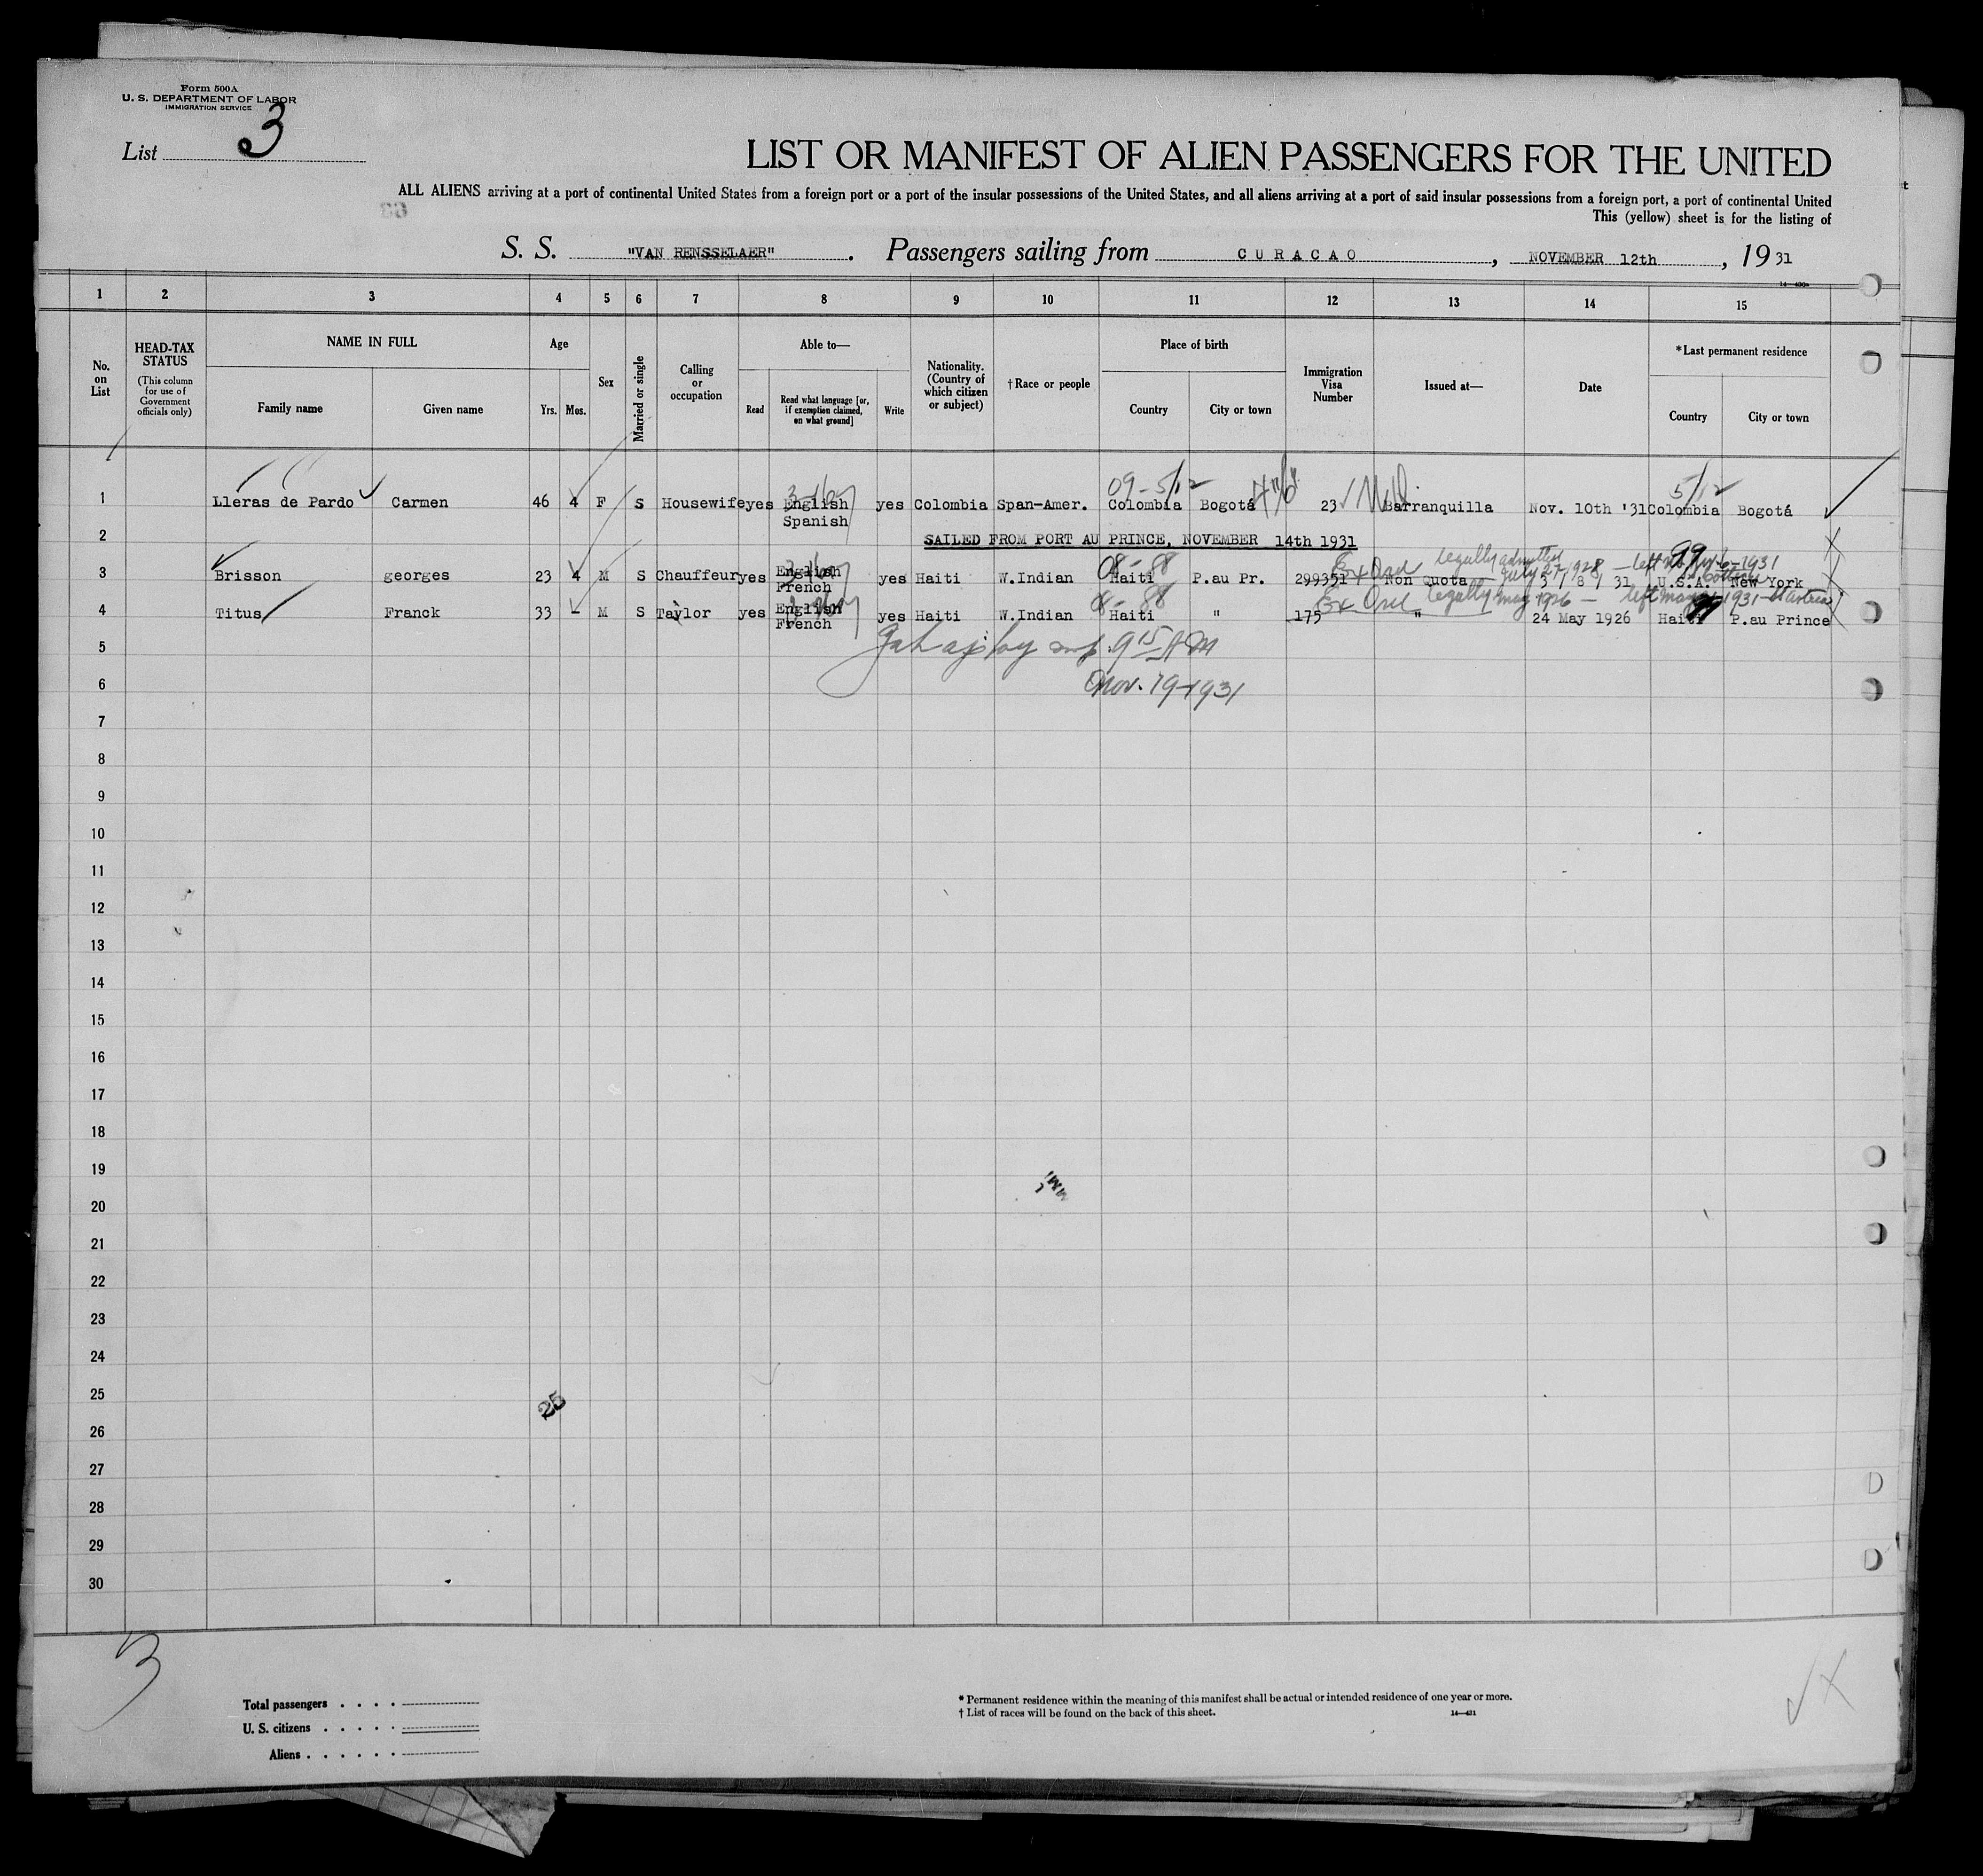 Form 500A
U. S. DEPARTMENT OF LABOR
IMMIGRATION SERVICE
List 3
LIST OR MANIFEST OF ALIEN PASSENGERS FOR THE UNITED
ALL ALIENS arriving at a port of continental United States from a foreign port or a port of the insular possessions of the United States, and all aliens arriving at a port of said insular possessions from a foreign port, a port of continental United
This (yellow) sheet is for the listing of
S. S. "VAN RENSSELAER". Passengers sailing from CURACAO, NOVEMBER 12th, 19 31
1 2 3 4 5 6 7 8 9 10 11 12 13 14 15
No. on List
HEAD-TAX STATUS (This column for use of Government officials only)
NAME IN FULL
Family name Given name
Age
Yrs. Mos.
Sex
Married or single
Calling or occupation
Able to—
Read Read what language [or, if exemption claimed, on what ground] Write
Nationality. (Country of which citizen or subject)
†Race or people
Place of birth
Country City or town
Immigration Visa Number
Issued at—
Date
*Last permanent residence
Country City or town
09-5/12 5/12
1 Lleras de Pardo Carmen 46 4 F S Housewife yes English yes Colombia Span-Amer. Colombia Bogotá 23 Barranquilla Nov. 10th '31 Colombia Bogotá
Spanish
2 SAILED FROM PORT AU PRINCE, NOVEMBER 14th 1931
legally admitted July 27 1928 — left
08-88 99
3 Brisson georges 23 4 M S Chauffeur yes English yes Haiti W.Indian Haiti P.au Pr. 299351 Non Quota 3 / 8 / 31 U.S.A. New York
French
legally May 1926 — left May 1931
4 Titus Franck 33 - M S Taylor yes English yes Haiti W.Indian Haiti " 175 " 24 May 1926 Haiti P.au Prince
French
5 9 15 AM
6 Nov. 19-1931
7
8
9
10
11
12
13
14
15
16
17
18
19
20
21
22
23
24
25
26
27
28
29
30
25
3
Total passengers
U. S. citizens
Aliens
* Permanent residence within the meaning of this manifest shall be actual or intended residence of one year or more.
† List of races will be found on the back of this sheet.
14—431